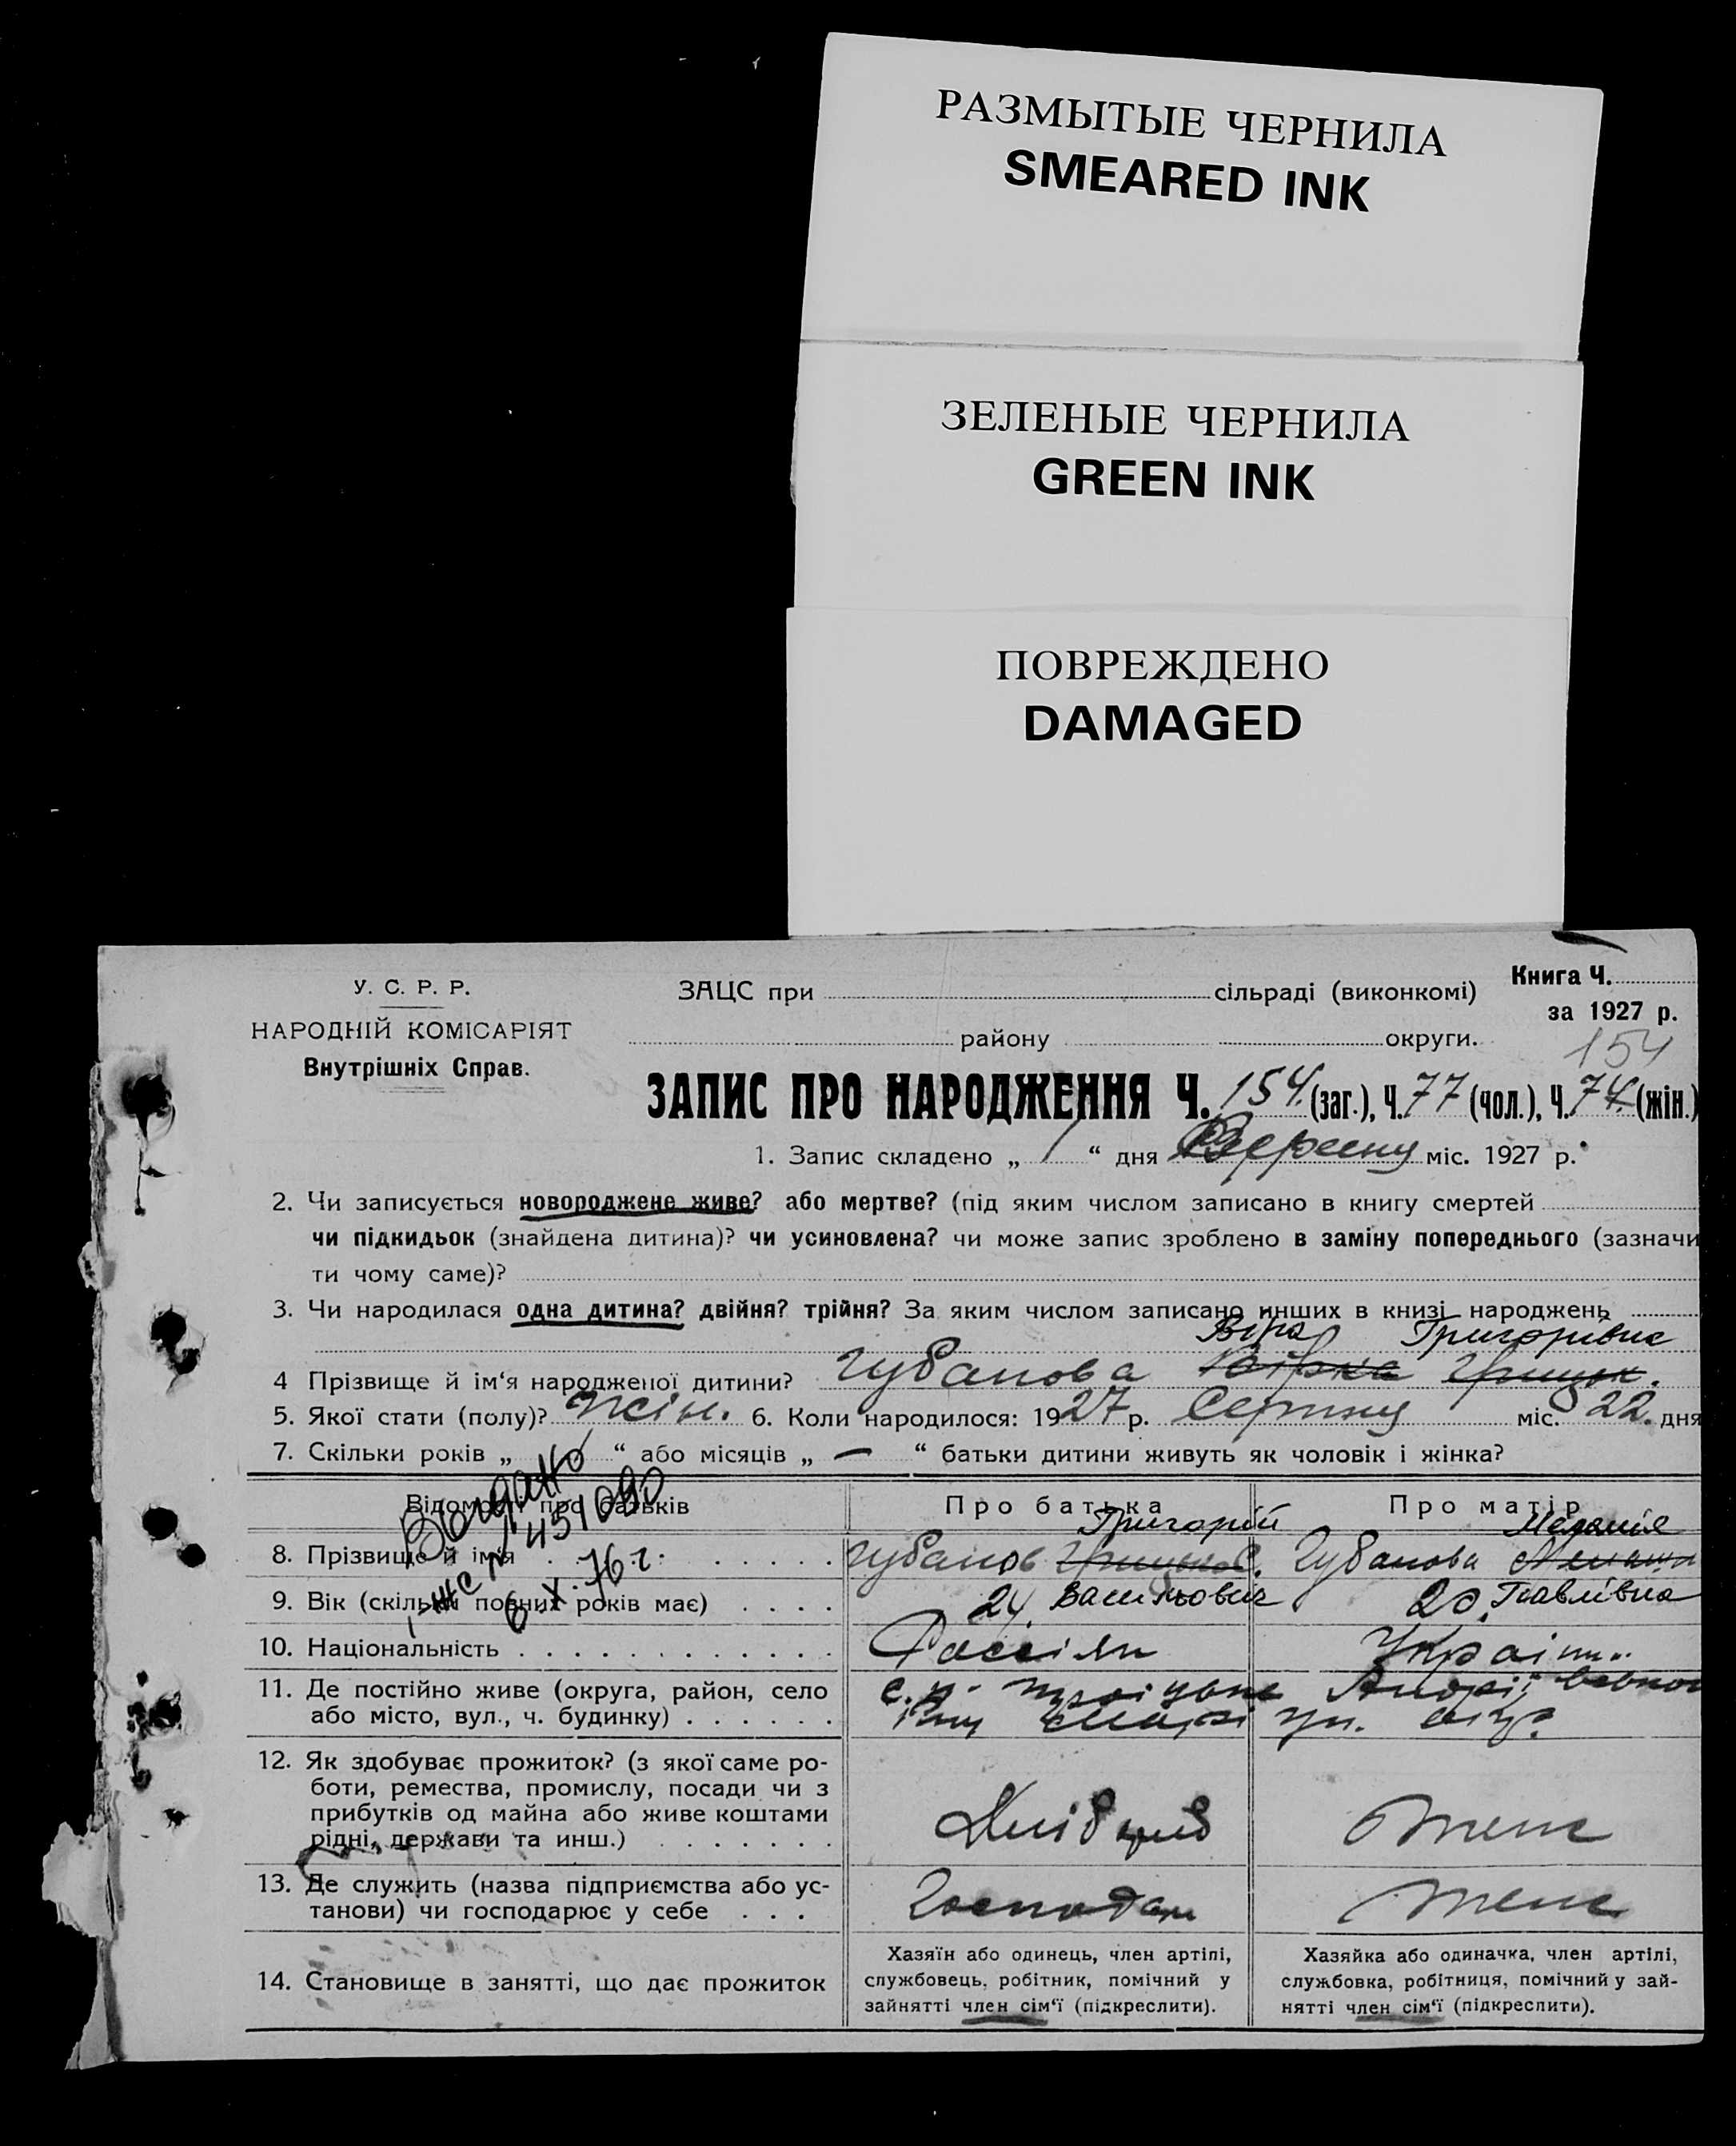 РАЗМЫТЫЕ ЧЕРНИЛА
SMEARED INK
ЗЕЛЕНЫЕ ЧЕРНИЛА
GREEN INK
ПОВРЕЖДЕНО
DAMAGED
У. С. Р. Р.
НАРОДНІЙ КОМІСАРІЯТ
Внутрішніх Справ.
ЗАЦС при сільраді (виконкомі)
району округи.
Книга Ч.
за 1927 р.
154
ЗАПИС ПРО НАРОДЖЕННЯ Ч. 154. (заг.), Ч. 77 (чол.), Ч. 74. (жін.)
1. Запис складено „ 1 “ дня Вересня міс. 1927 р.
2. Чи записується новороджене живе? або мертве? (під яким числом записано в книгу смертей
чи підкидьок (знайдена дитина)? чи усиновлена? чи може запис зроблено в заміну попереднього (зазначи
ти чому саме)?
3. Чи народилася одна дитина? двійня? трійня? За яким числом записано инших в книзі народжень
Віра Григорівна
4 Прізвище й ім‘я народженої дитини? Губанова
5. Якої стати (полу)? Жін. 6. Коли народилося: 1927 р. Серпня міс. 22. дня
7. Скільки років „ “ або місяців „ — “ батьки дитини живуть як чоловік і жінка?
Видано
I-ЖС № 454090
6.X.76 г.
Відомості про батьків
Про батька
Про матір
Григорій
Меланія
8. Прізвище й імія Губанов Губанова
9. Вік (скільки повних років має) 24. Васильович 20. Павлівна
10. Національність Россіян Україн..
11. Де постійно живе (округа, район, село
або місто, вул., ч. будинку)
12. Як здобуває прожиток? (з якої саме ро-
боти, ремества, промислу, посади чи з
прибутків од майна або живе коштами
рідні, держави та инш.)
13. Де служить (назва підприємства або ус-
танови) чи господарює у себе Господар
14. Становище в занятті, що дає прожиток
Хазяїн або одинець, член артілі,
службовець, робітник, помічний у
зайнятті член сім‘ї (підкреслити).
Хазяйка або одиначка, член артілі,
службовка, робітниця, помічний у зай-
нятті член сім‘ї (підкреслити).